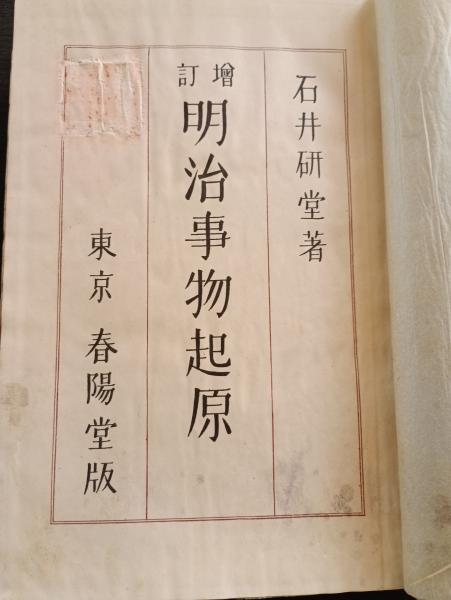 石井研堂著
増訂
明治事物起原
東京 春陽堂版